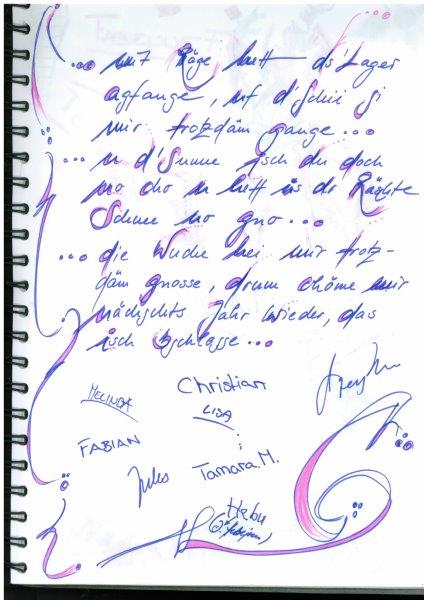 ... mit Räge hett ds'Lager
agfange, uf d'Schii si
mir trotzdäm gange ...
... u d'Sunne isch du doch
no cho u hett üs dr Räschte
Schnee no gno ...
... die Wuche hei mir trotz-
däm gnosse, drum chöme mir
nächschts Jahr wieder, das
isch bschlosse ...
MELINDA
Christian
LISA
FABIAN
Jules
Tamara.M.
Hebu